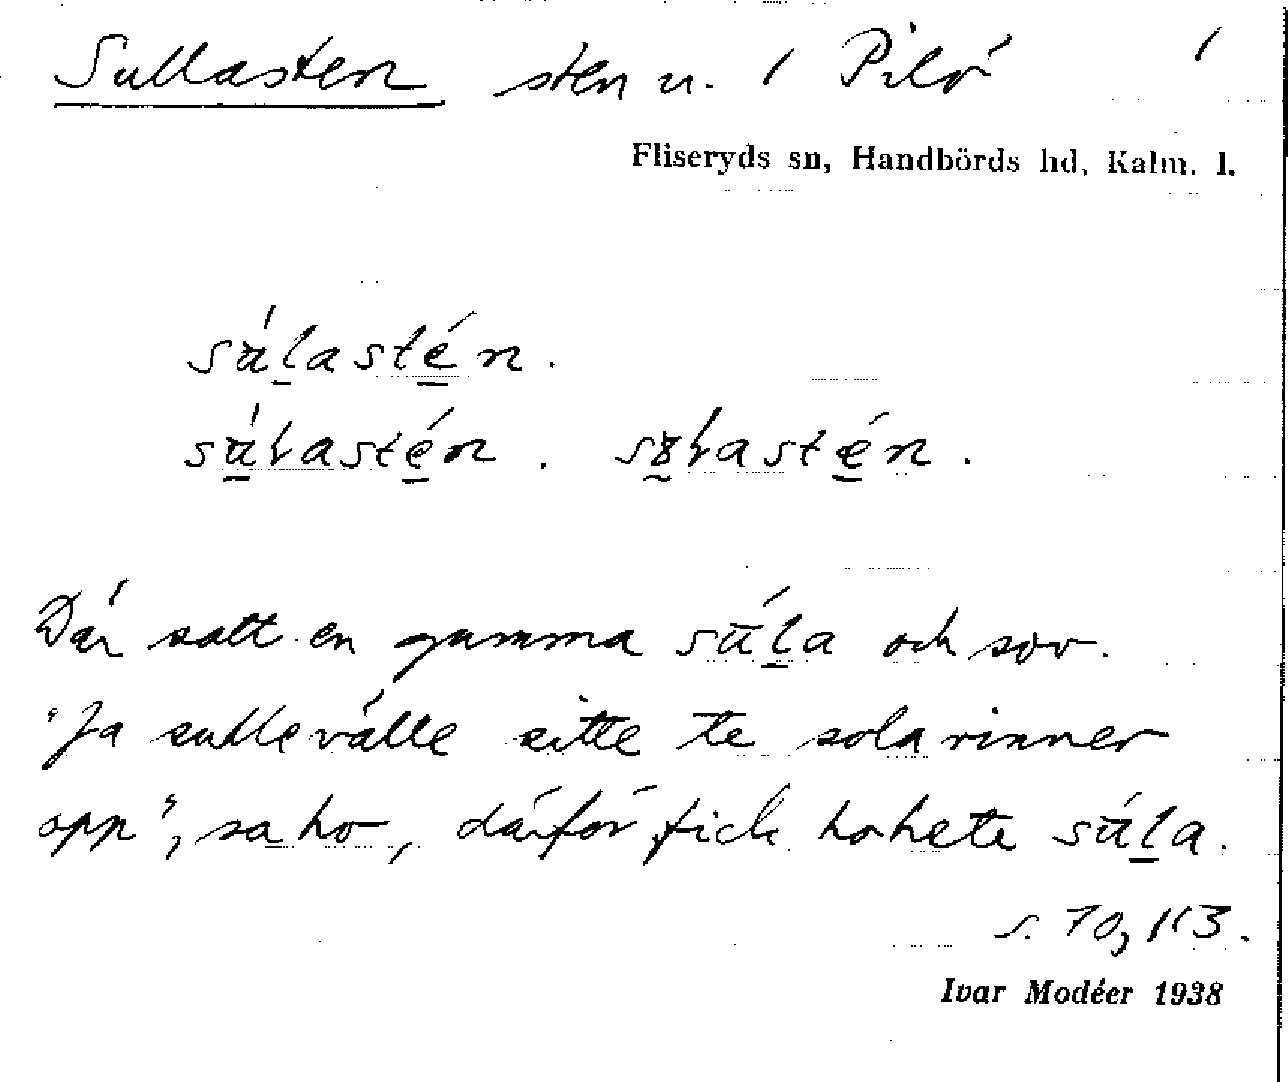 Sullasten sten n. i Pilö
Fliseryds sn, Handbörds hd, Kalm. l.
sú̄lastén.
sú̄lastén. sɤlastén.
Där satt en gamma sú̄la och sov.
"Ja sulle välle sitte te sola rinner
opp", sa ho, därför fick ho hete sú̄la.
s. 70, 113.
Ivar Modéer 1938